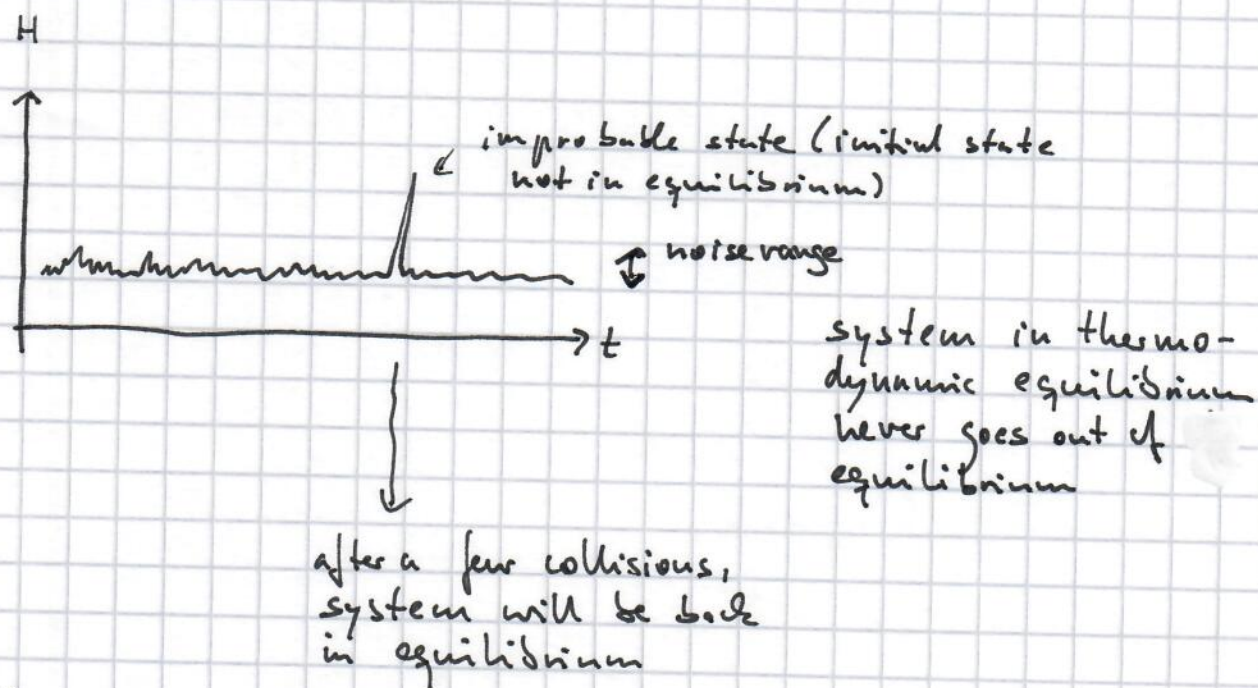 H
improbable state (initial state
not in equilibrium)
noise range
t
system in thermo-
dynamic equilibrium
never goes out of
equilibrium
after a few collisions,
system will be back
in equilibrium